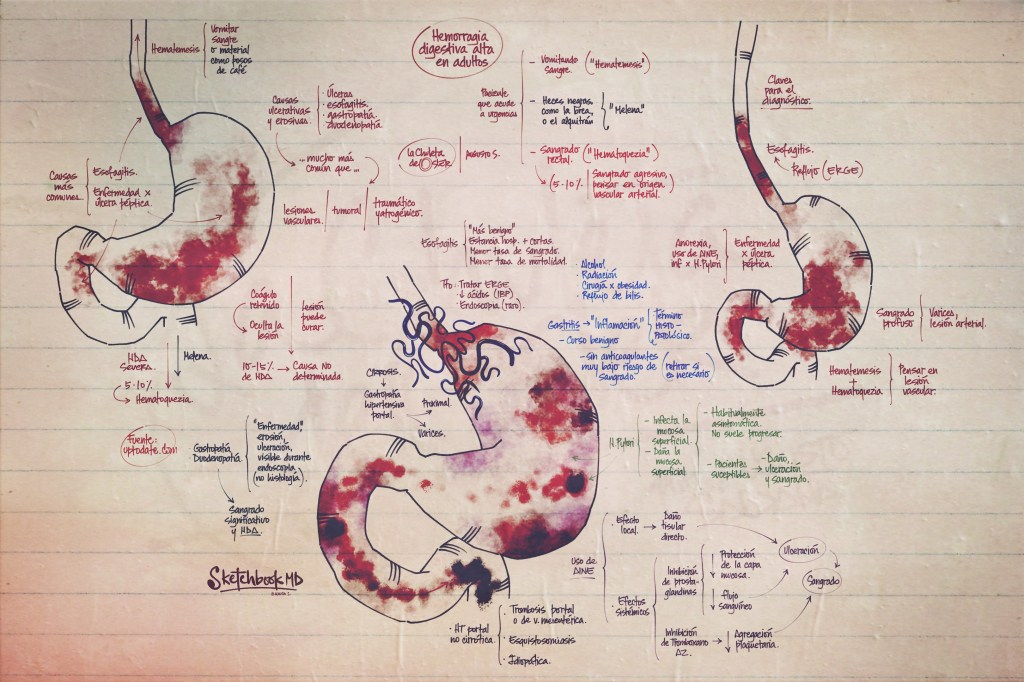 Hemorragia
digestiva alta
en adultos
Hematemesis
Vomitar
sangre
o material
como posos
de café
Causas
ulcerativas
y erosivas.
· Úlceras
· esofagitis
· gastropatía
· duodenopatía
...mucho más
común que ...
lesiones
vasculares
tumoral
traumático
yatrogénico.
Causas
más
comunes.
Esofagitis.
Enfermedad x
úlcera péptica.
La Chuleta
de Osler
Paciente
que acude
a urgencias
- Vomitando
Sangre.
("Hematemesis")
- Heces negras,
como la brea,
o el alquitrán
"Melena"
- Sangrado
rectal.
("Hematoquezia")
(5-10%
Sangrado agresivo,
pensar en origen
vascular arterial.)
Claves
para el
diagnóstico.
Esofagitis.
Reflujo (ERGE)
Anorexia,
uso de AINE,
inf x H. Pylori
Enfermedad
x úlcera
péptica.
Sangrado
profuso
Varices,
lesión arterial.
Hematemesis
+
Hematoquezia
Pensar en
lesión
vascular.
Esofagitis
"Más benigno"
Estancia hosp. + cortas.
Menor tasa de sangrado.
Menor tasa de mortalidad.
Tto: Tratar ERGE
↓ ácidos (IBP)
· Endoscopia (raro)
· Alcohol
· Radiación
· Cirugía x obesidad.
· Reflujo de bilis.
Gastritis → "Inflamación"
Término
Histo-
Patológico.
- Curso benigno
- sin anticoagulantes
muy bajo riesgo de
sangrado.
(retirar si
es necesario)
Coágulo
retenido
Oculta la
lesión
Lesión
puede
curar.
10-15%
de HDA
→ Causa No
determinada
HDA
severa.
Melena.
5-10%
→ Hematoquezia.
Cirrosis.
Gastropatía
hipertensiva
portal.
Proximal.
Varices.
Fuente:
uptodate.com
· Gastropatía
· Duodenopatía
"Enfermedad"
erosión,
ulceración,
visible durante
endoscopia,
(no histología).
Sangrado
significativo
y HDA.
H. Pylori
- Infecta la
mucosa
superficial.
- Daña la
mucosa
superficial
- Habitualmente
asintomática.
No suele progresar.
- Pacientes
suceptibles
→ Daño,
ulceración
y sangrado.
Uso de
AINE
· Efecto
local.
→ Daño
tisular
directo.
· Efectos
sistémicos
Inhibición
de prosta-
glandinas
↓ Protección
de la capa
mucosa.
↓ flujo
sanguíneo
Inhibición
de Tromboxano
A2.
↓ Agregación
plaquetaria.
Ulceración
Sangrado
SketchbookMD
· HT portal
no cirrótica.
· Trombosis portal
o de v. mesentérica.
· Esquistosomiasis
· Idiopática.